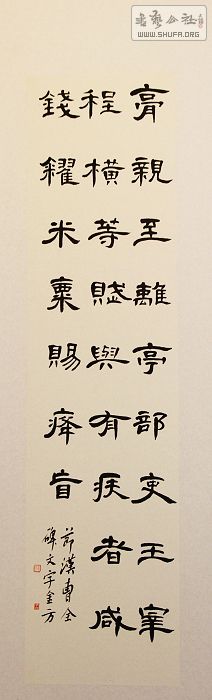 膏親至離亭部吏王宰
程橫等賦與有疾者咸
錢糴米粟賜癃盲
節漢曹全
碑文字金方
書藝公社
WWW.SHUFA.ORG